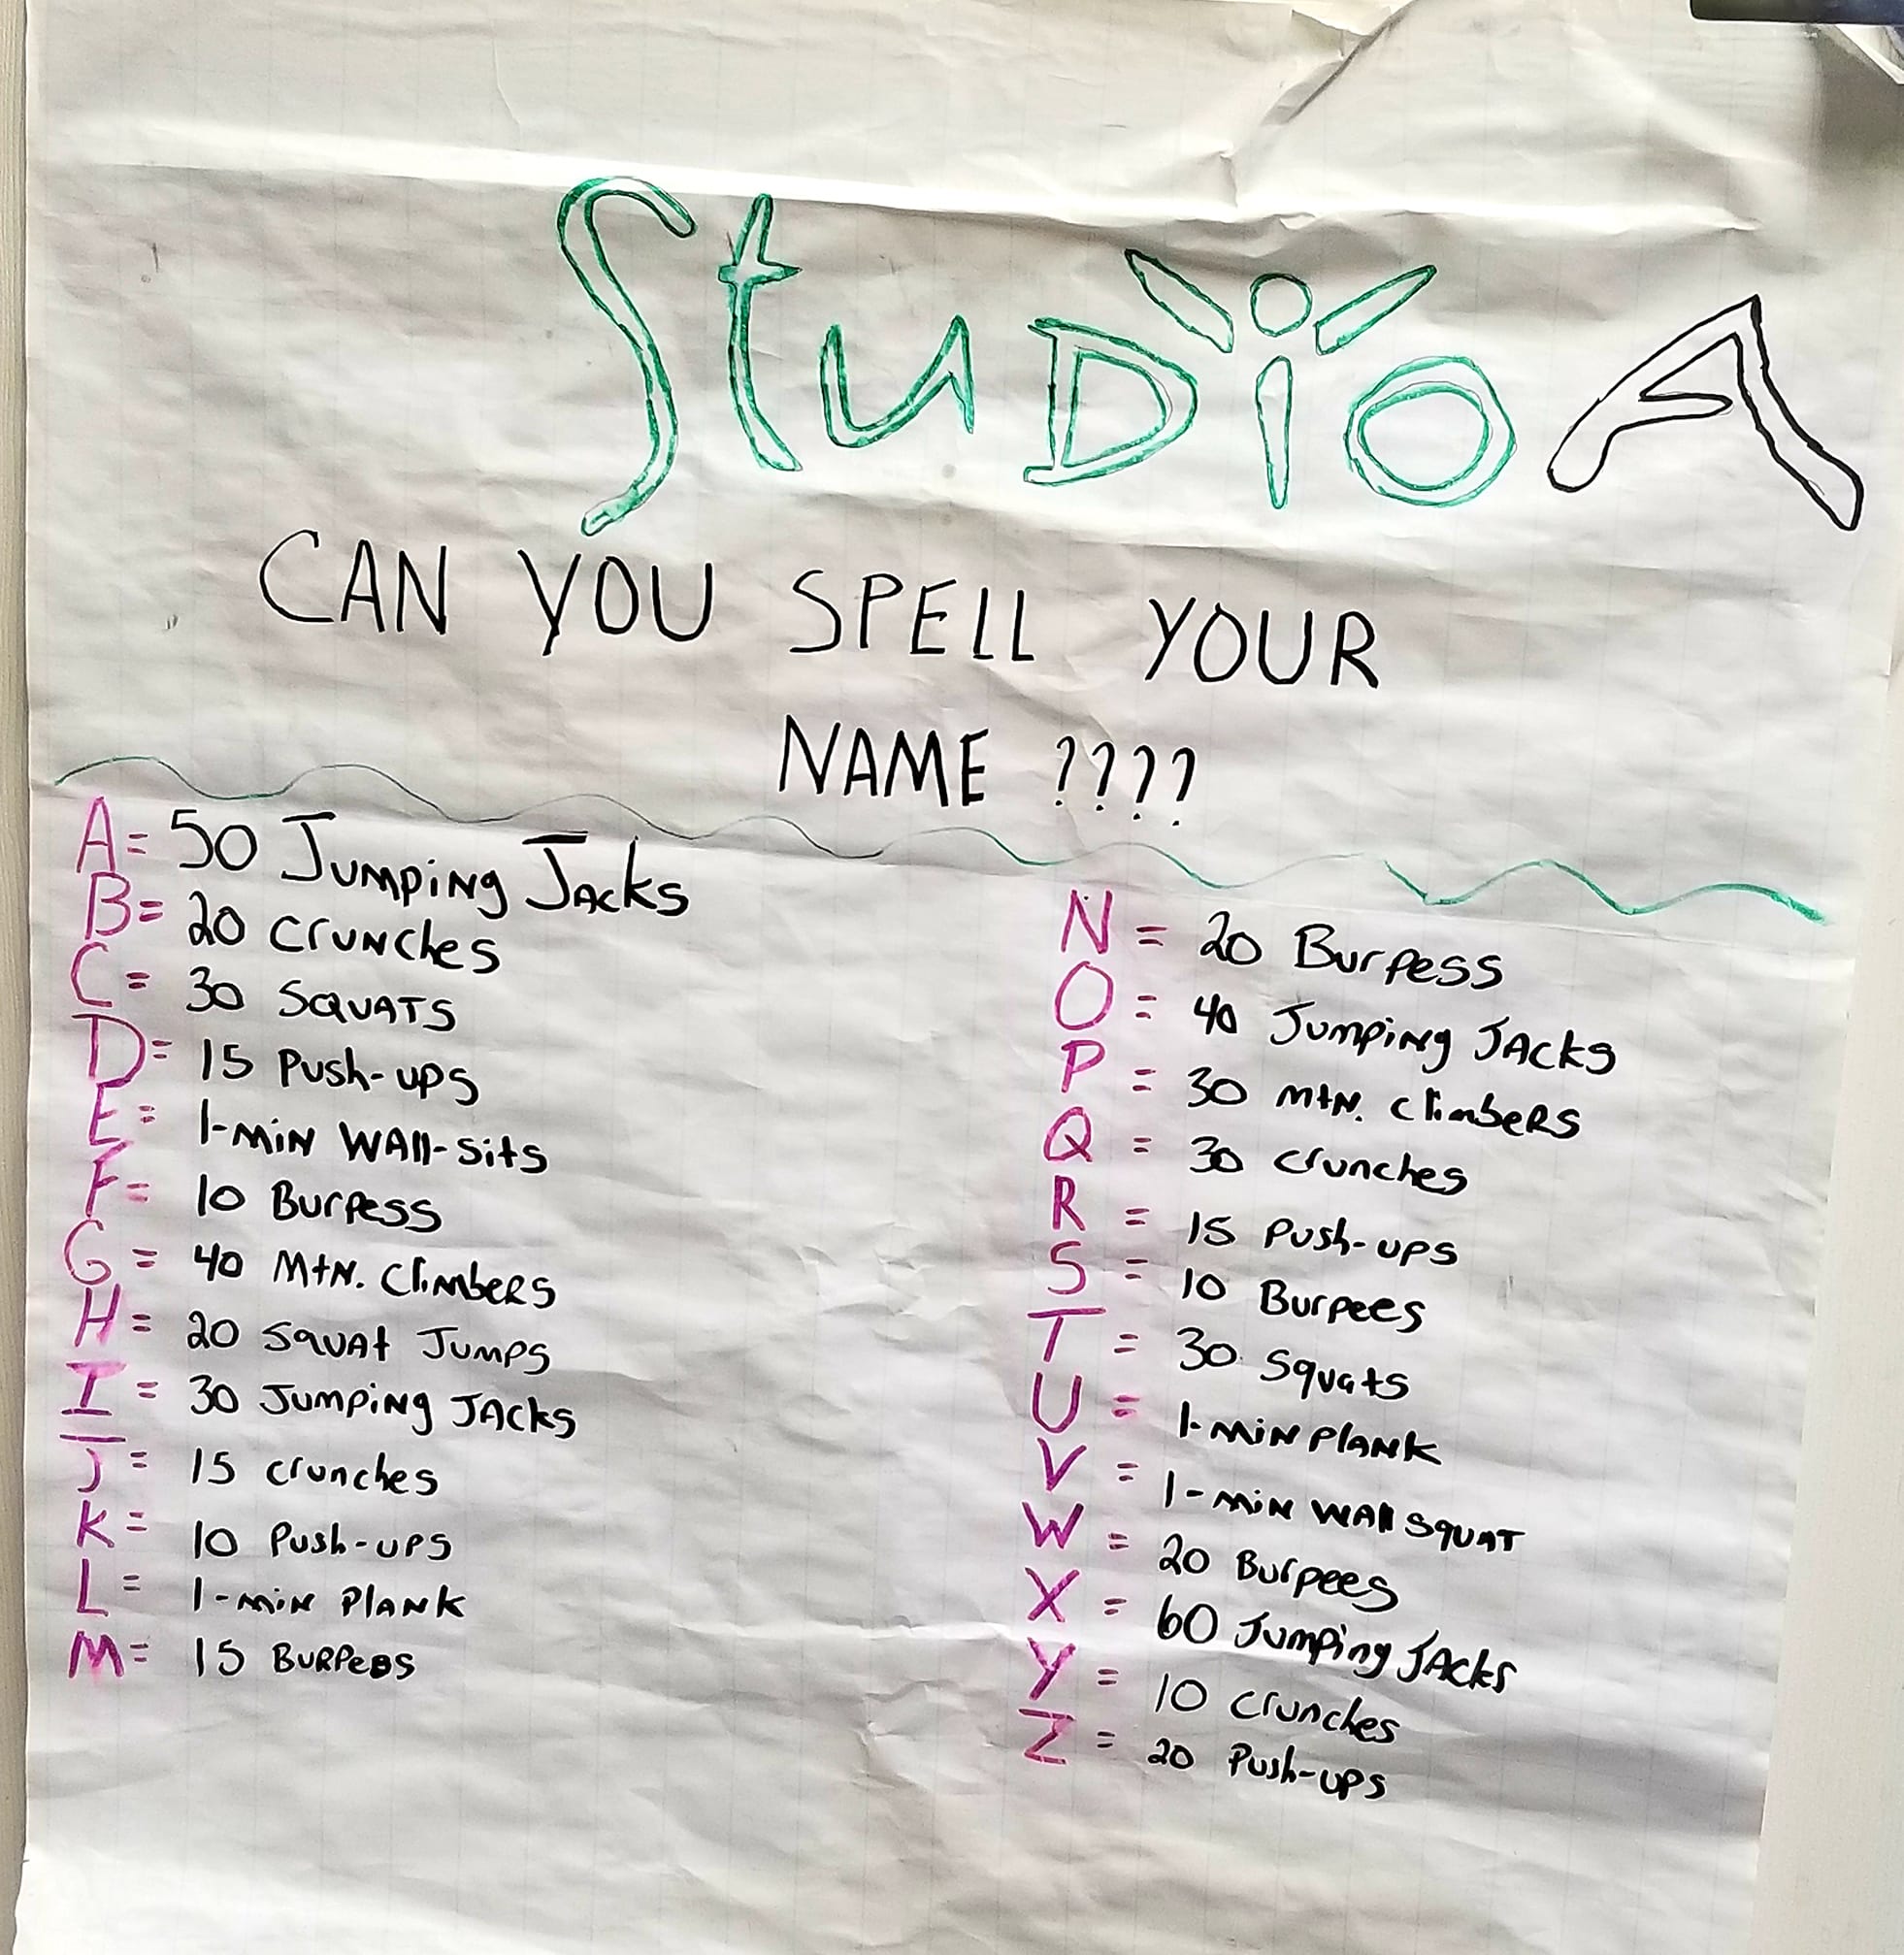 Studio A
CAN YOU SPELL YOUR
NAME ????
A= 50 Jumping Jacks
B= 20 Crunches
C= 30 SQUATS
D= 15 Push-ups
E= 1-MiN WAll-Sits
F= 10 Burpess
G= 40 Mtn. Climbers
H= 20 Squat Jumps
I= 30 Jumping Jacks
J= 15 crunches
K= 10 Push-ups
L= 1-min Plank
M= 15 Burpees
N= 20 Burpess
O= 40 Jumping Jacks
P= 30 mtn. climbers
Q= 30 crunches
R= 15 Push-ups
S= 10 Burpees
T= 30 Squats
U= 1-min Plank
V= 1-min Wall squat
W= 20 Burpees
X= 60 Jumping Jacks
Y= 10 crunches
Z= 20 Push-ups